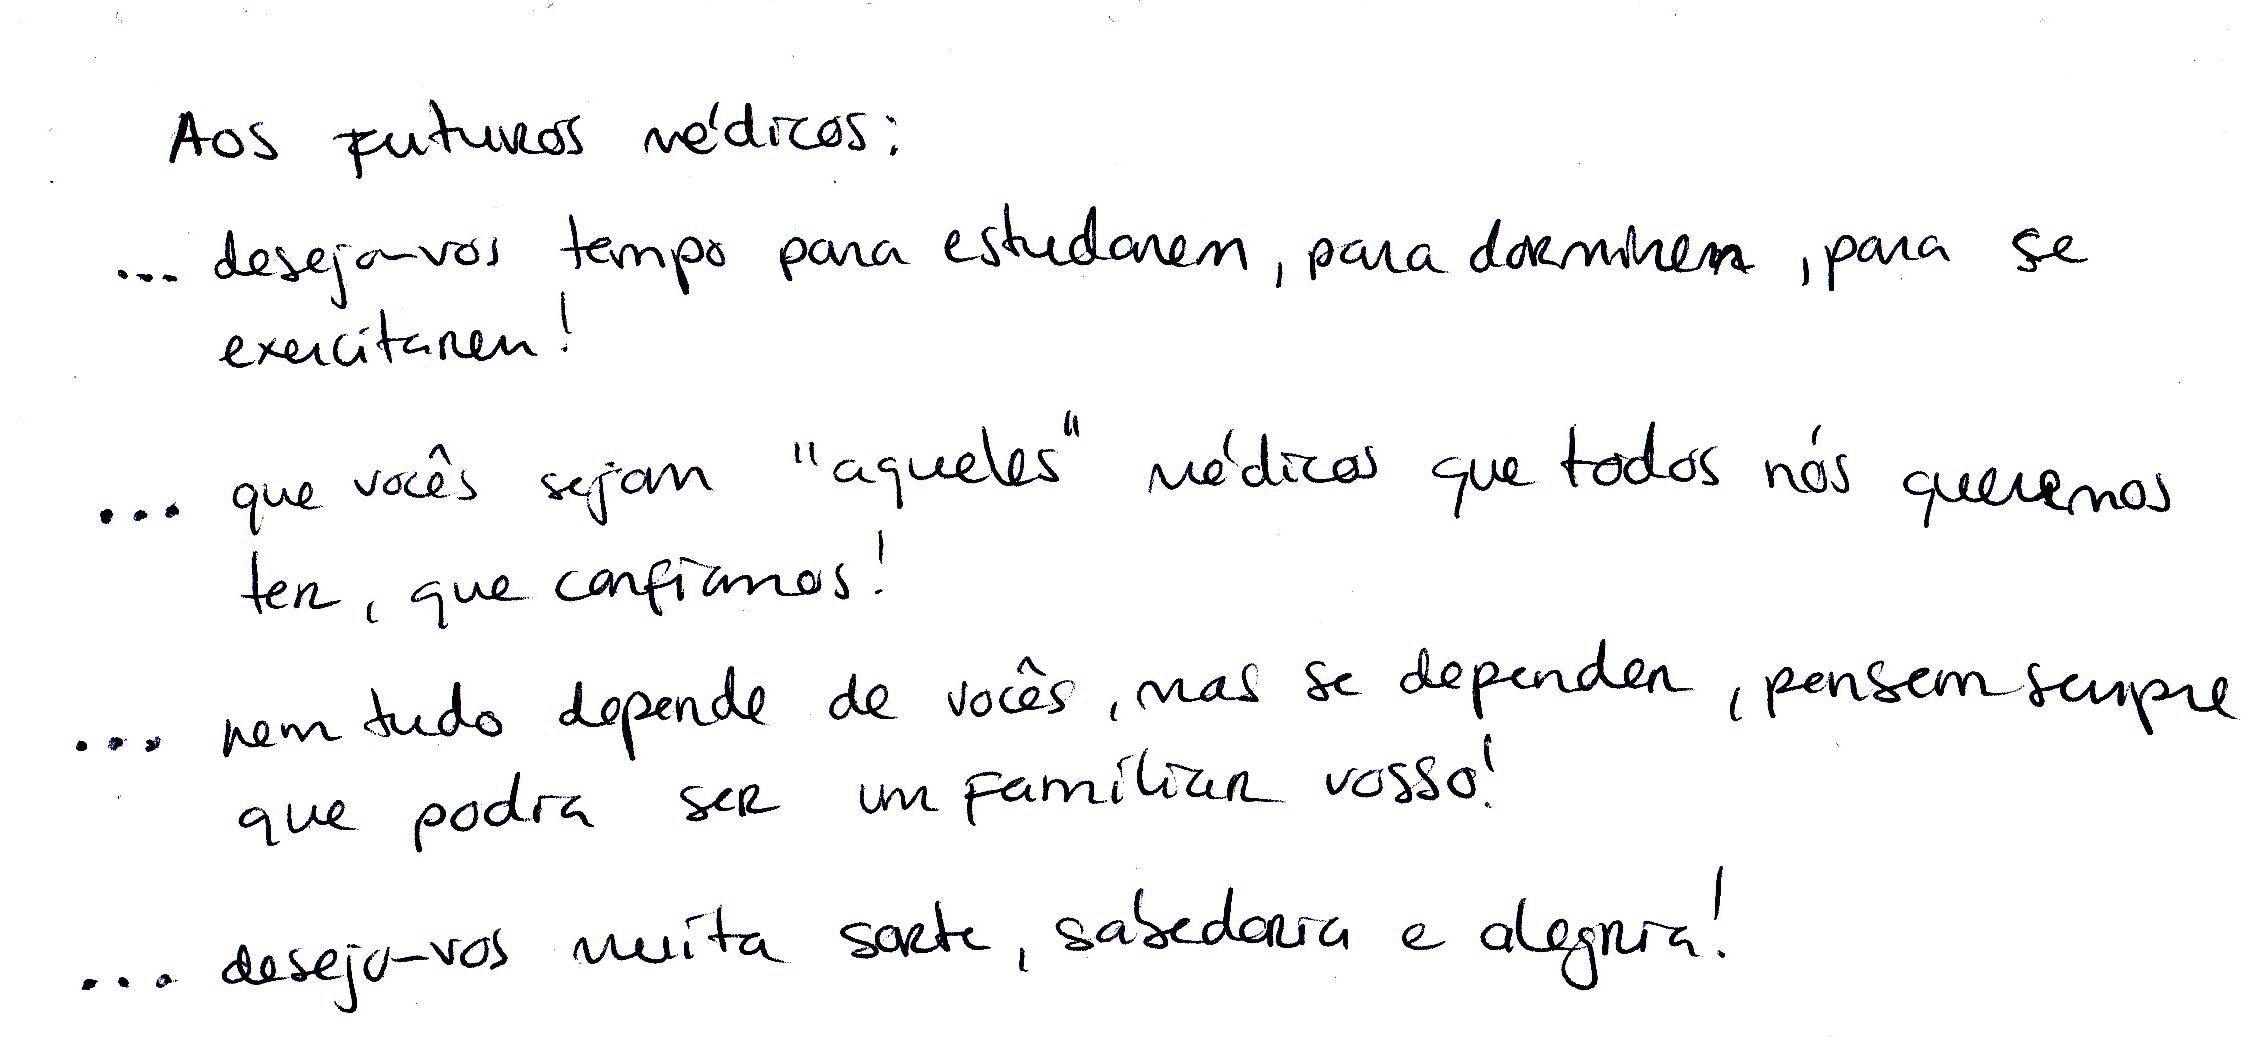 Aos futuros médicos:
... desejo-vos tempo para estudarem, para dormirem, para se
exercitarem!
... que vocês sejam "aqueles" médicos que todos nós queremos
ter, que confiamos!
... nem tudo depende de vocês, mas se depender, pensem sempre
que podia ser um familiar vosso!
... desejo-vos muita sorte, sabedoria e alegria!